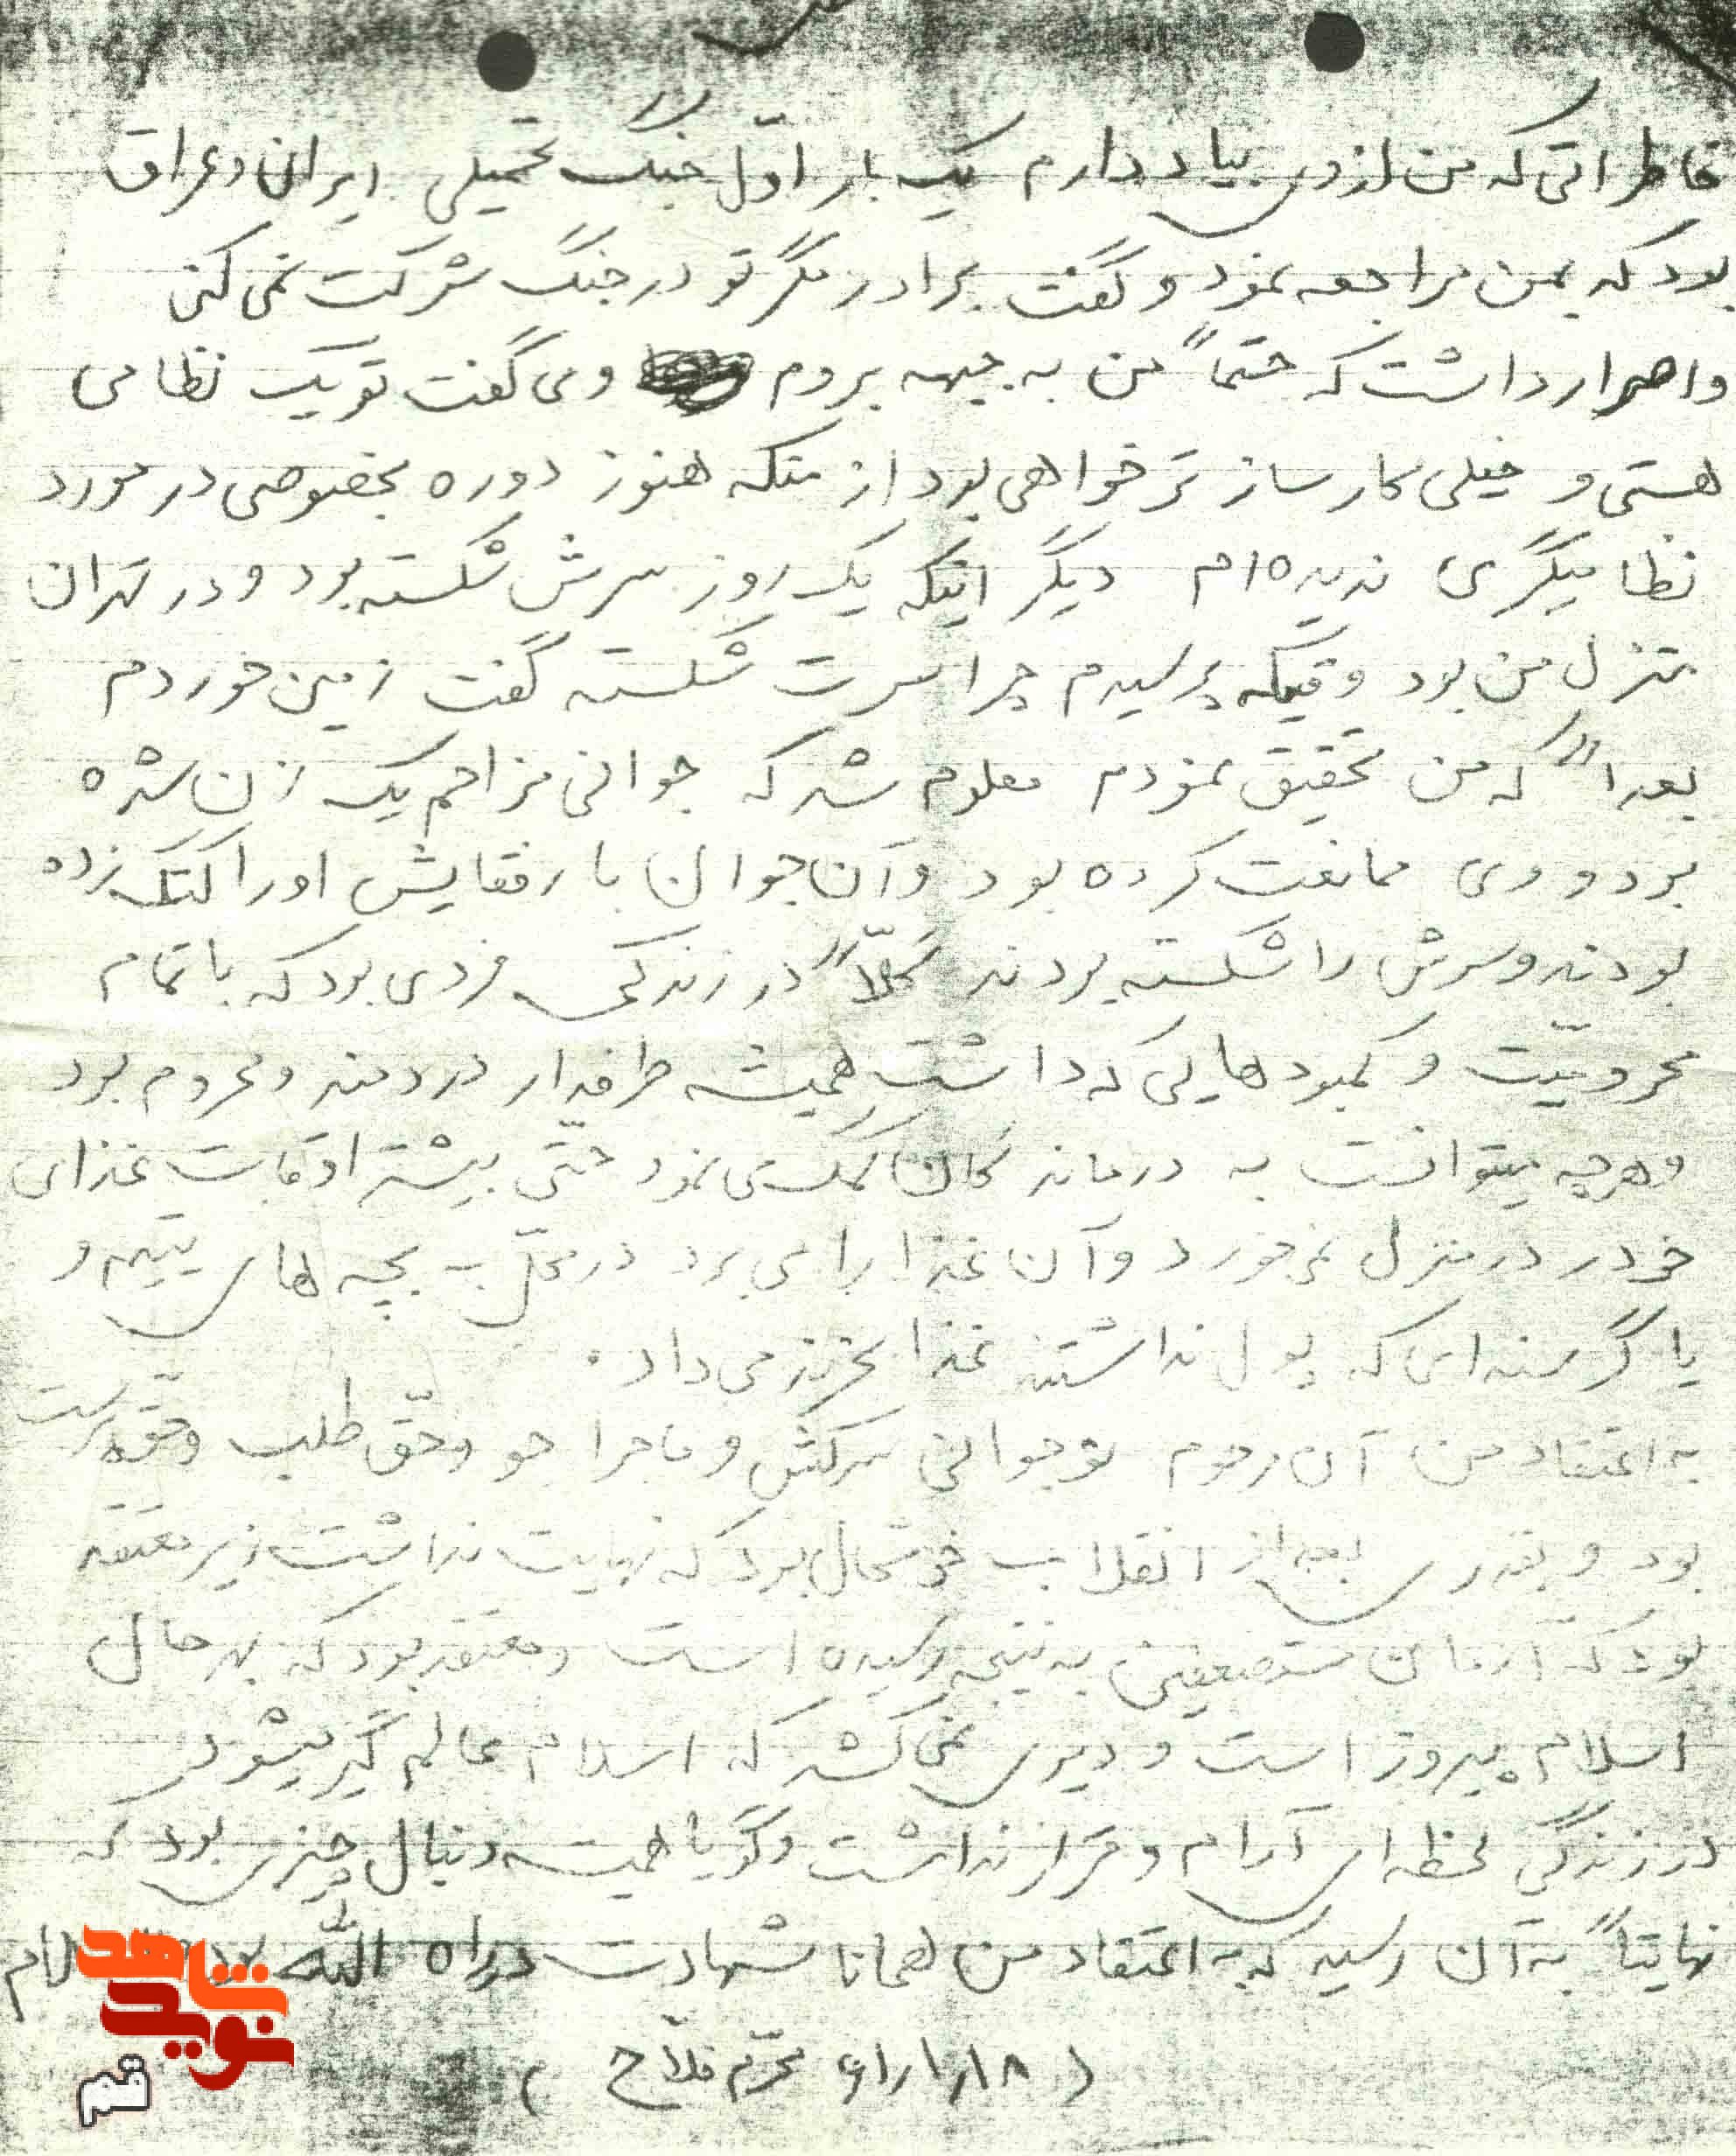 خاطراتی که من از وی بیاد دارم یک بار اوّل جنگ تحمیلی ایران و عراق
بود که بمن مراجعه نمود و گفت برادر مگر تو در جنگ شرکت نمی کنی
و اصرار داشت که حتماً من به جبهه بروم و می گفت تو یک نظامی
هستی و خیلی کارساز تر خواهی بود از منکه هنوز دوره بخصوصی در مورد
نظامیگری ندیده ام دیگر اینکه یک روز سرش شکسته بود و در تهران
منزل من بود وقتیکه پرسیدم چرا سرت شکسته گفت زمین خوردم
بعداً که من تحقیق نمودم معلوم شد که جوانی مزاحم یک زن شده
بود و وی ممانعت کرده بود و آن جوان با رفقایش او را کتک زده
بودند و سرش را شکسته بودند کلّاً در زندگی فردی بود که با تمام
محرومیّت و کمبودهایی که داشت همیشه طرفدار دردمند و محروم بود
و هرچه میتوانست به درماندگان کمک می نمود حتّی بیشتر اوقات غذای
خود در منزل نمیخورد و آن غذا را می برد در محلّ به بچه های یتیم و
یا گرسنه ای که پول نداشتند غذا بخرند می داد .
به اعتقاد من آن مرحوم نوجوانی سرکش و ماجرا جو و حقّ طلب و حقّ پرست
بود و بقدری بعد از انقلاب خوشحال بود که نهایت نداشت زیر معتقد
بود که آرمان مستضعفین به نتیجه رسیده است و معتقد بود که بهرحال
اسلام پیروز است و دیری نمی کشد که اسلام عالم گیر میشود
در زندگی لحظه ای آرام و قرار نداشت و گویا همیشه دنبال چیزی بود که
نهایتاً به آن رسید که به اعتقاد من همانا شهادت در راه الله بود
( محرّم فلّاح )
شاهد
نوید
قم